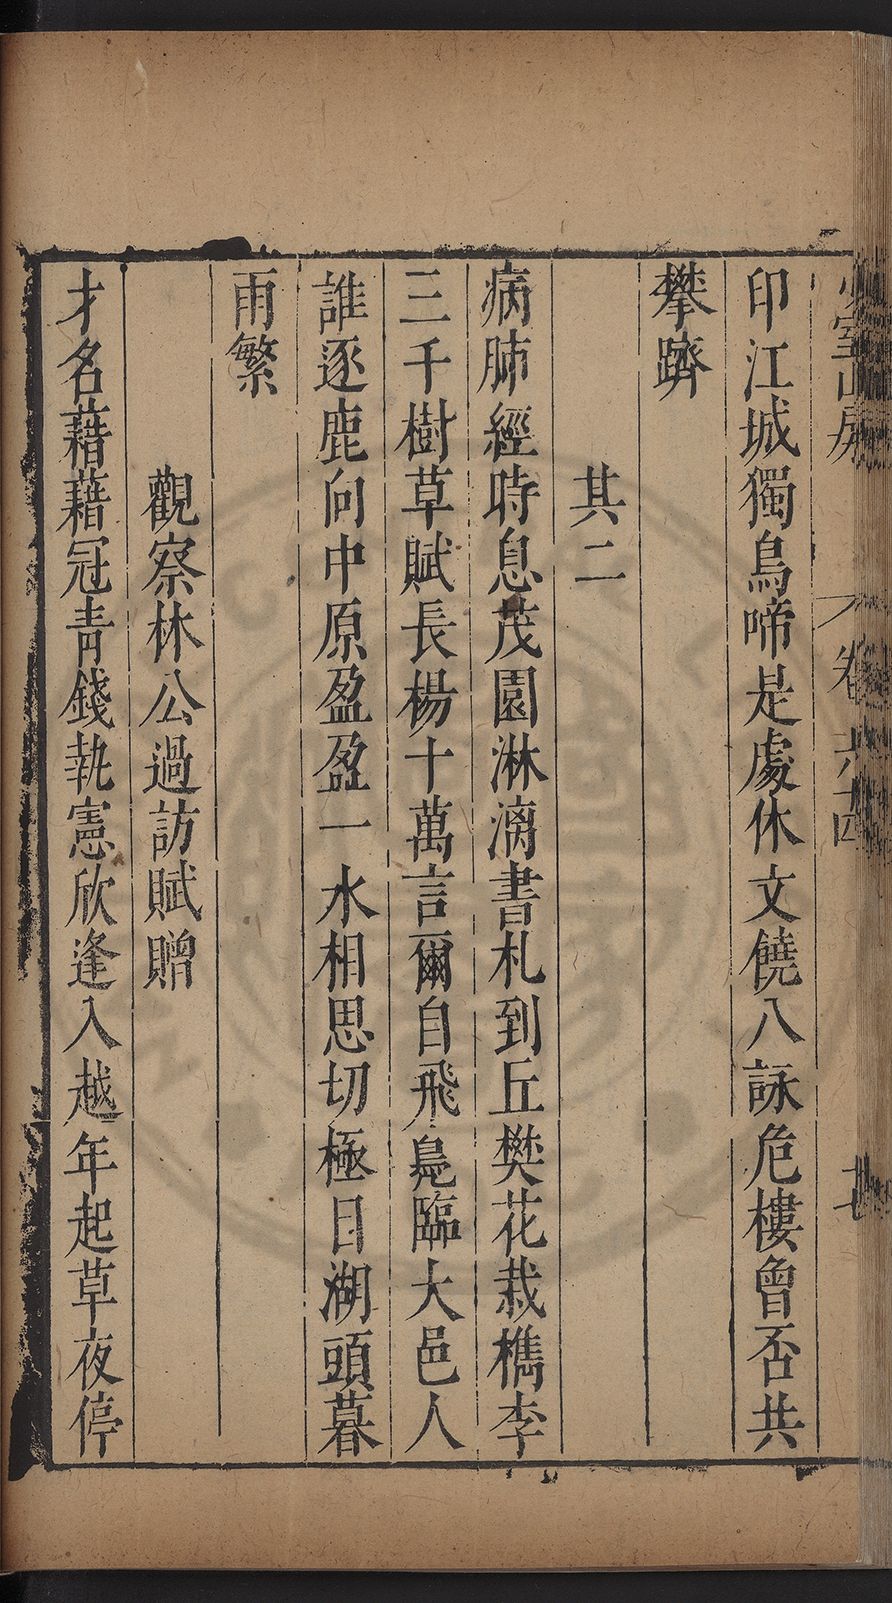 少室山房　卷六十四　七
印江城獨鳥啼是處休文饒八詠危樓曾否共
攀躋
其二
病肺經時息茂園淋漓書札到丘樊花栽檇李
三千樹草賦長楊十萬言爾自飛鳧臨大邑人
誰逐鹿向中原盈盈一水相思切極目湖頭暮
雨繁
觀察林公過訪賦贈
才名藉藉冠青錢執憲欣逢入越年起草夜停